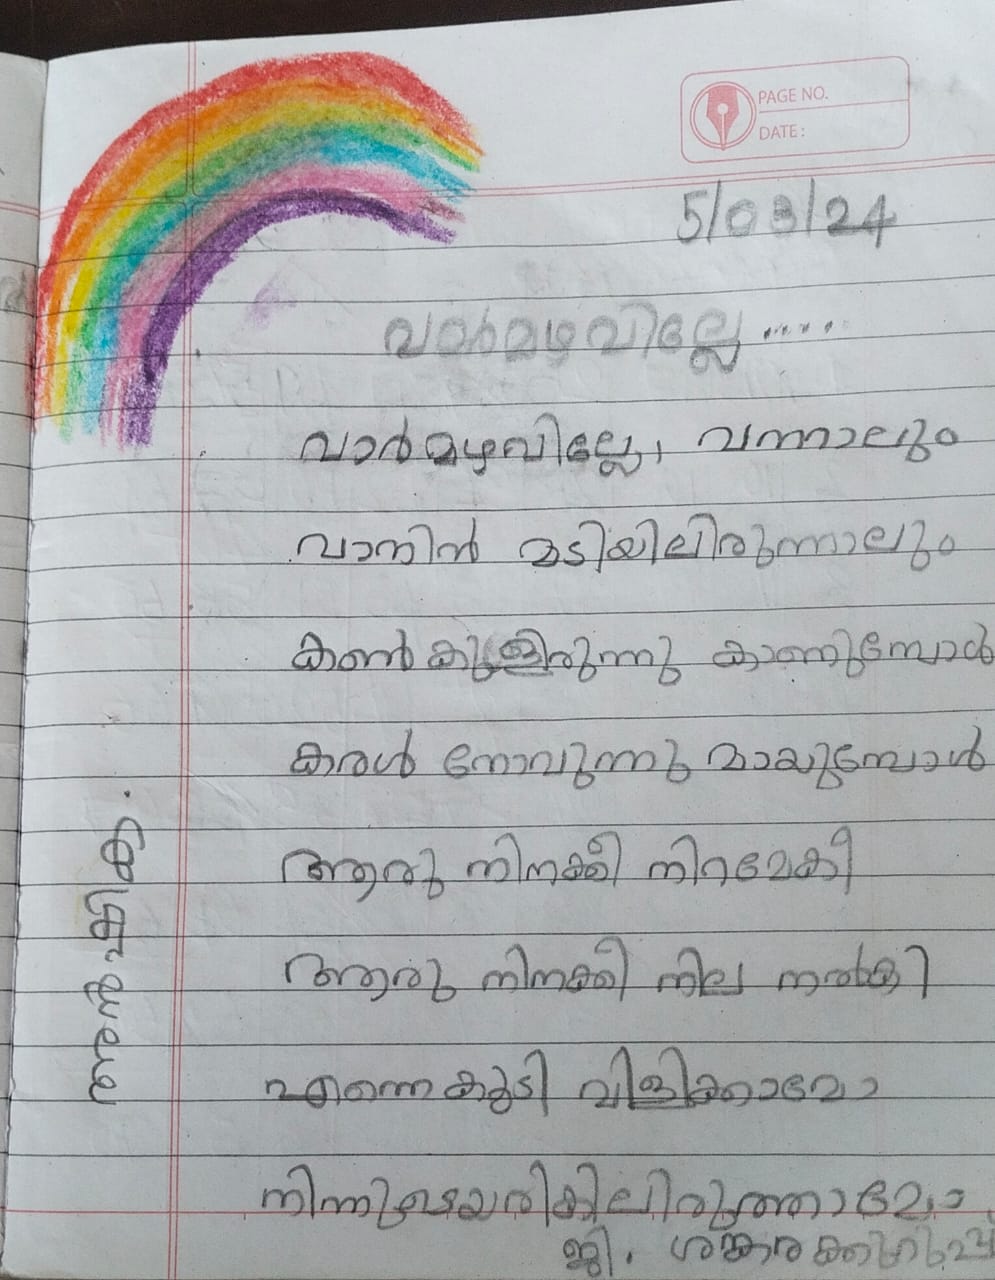 PAGE NO.
DATE:
5/03/24
വാർമഴവില്ലേ.....
വാർമഴവില്ലേ, വന്നാലും
വാനിൻ മടിയിലിരുന്നാലും
കൺകുളിരുന്നു കാണുമ്പോൾ
കരൾ നോവുന്നു മായുമ്പോൾ
ആരു നിനക്കീ നിറമേകീ
ആരു നിനക്കീ നില നൽകി
എന്നെകൂടി വിളിക്കാമോ
നിന്നുടെയരികിലിരുത്താമോ
ജി. ശങ്കരക്കുറുപ്പ്